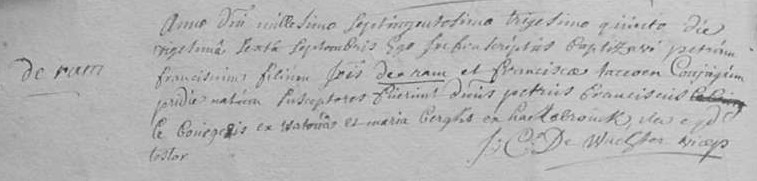 Anno dni millesimo septingentesimo trigesimo quinto die
vigesima sexta septembris Ego subscriptus baptizavi petrum
de ram
franciscum filium Jois de ram et franciscæ Conjugum
pridie natum susceptores fuerunt dnus petrus franciscus
le ex et maria berghs ex de q
testor J: C: De Wachter vicep